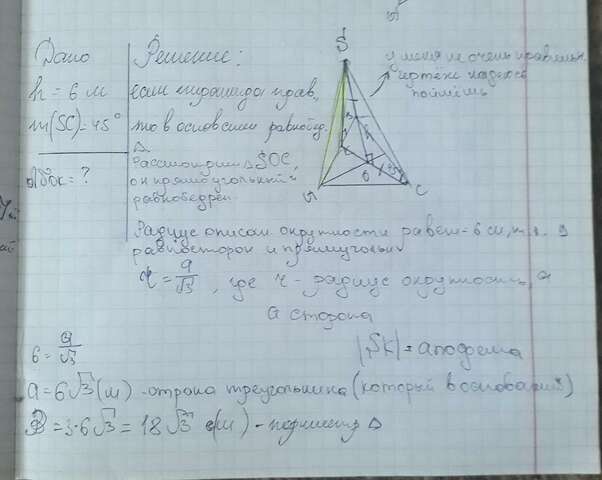 Дано
Решение:
h = 6 м
если пирамида прав,
m(SC)=45°
то в основании равнобед.
Δ
Sбок = ?
Рассмотрим ΔSOC,
он прямоугольный и
равнобедрен
у меня не очень правильн
чертёж надеюсь
поймёшь
S
B
O
45°
C
Радиус описан окружности равен 6 см, т.к.
равностор и прямуголы
r = a/√3, где r - радиус окружности, a
a сторона
6 = a/√3
|SK| = апофема
a = 6√3 (м) - строна треугольника (который в основании)
P = 3·6√3 = 18√3 (м) - периметр Δ